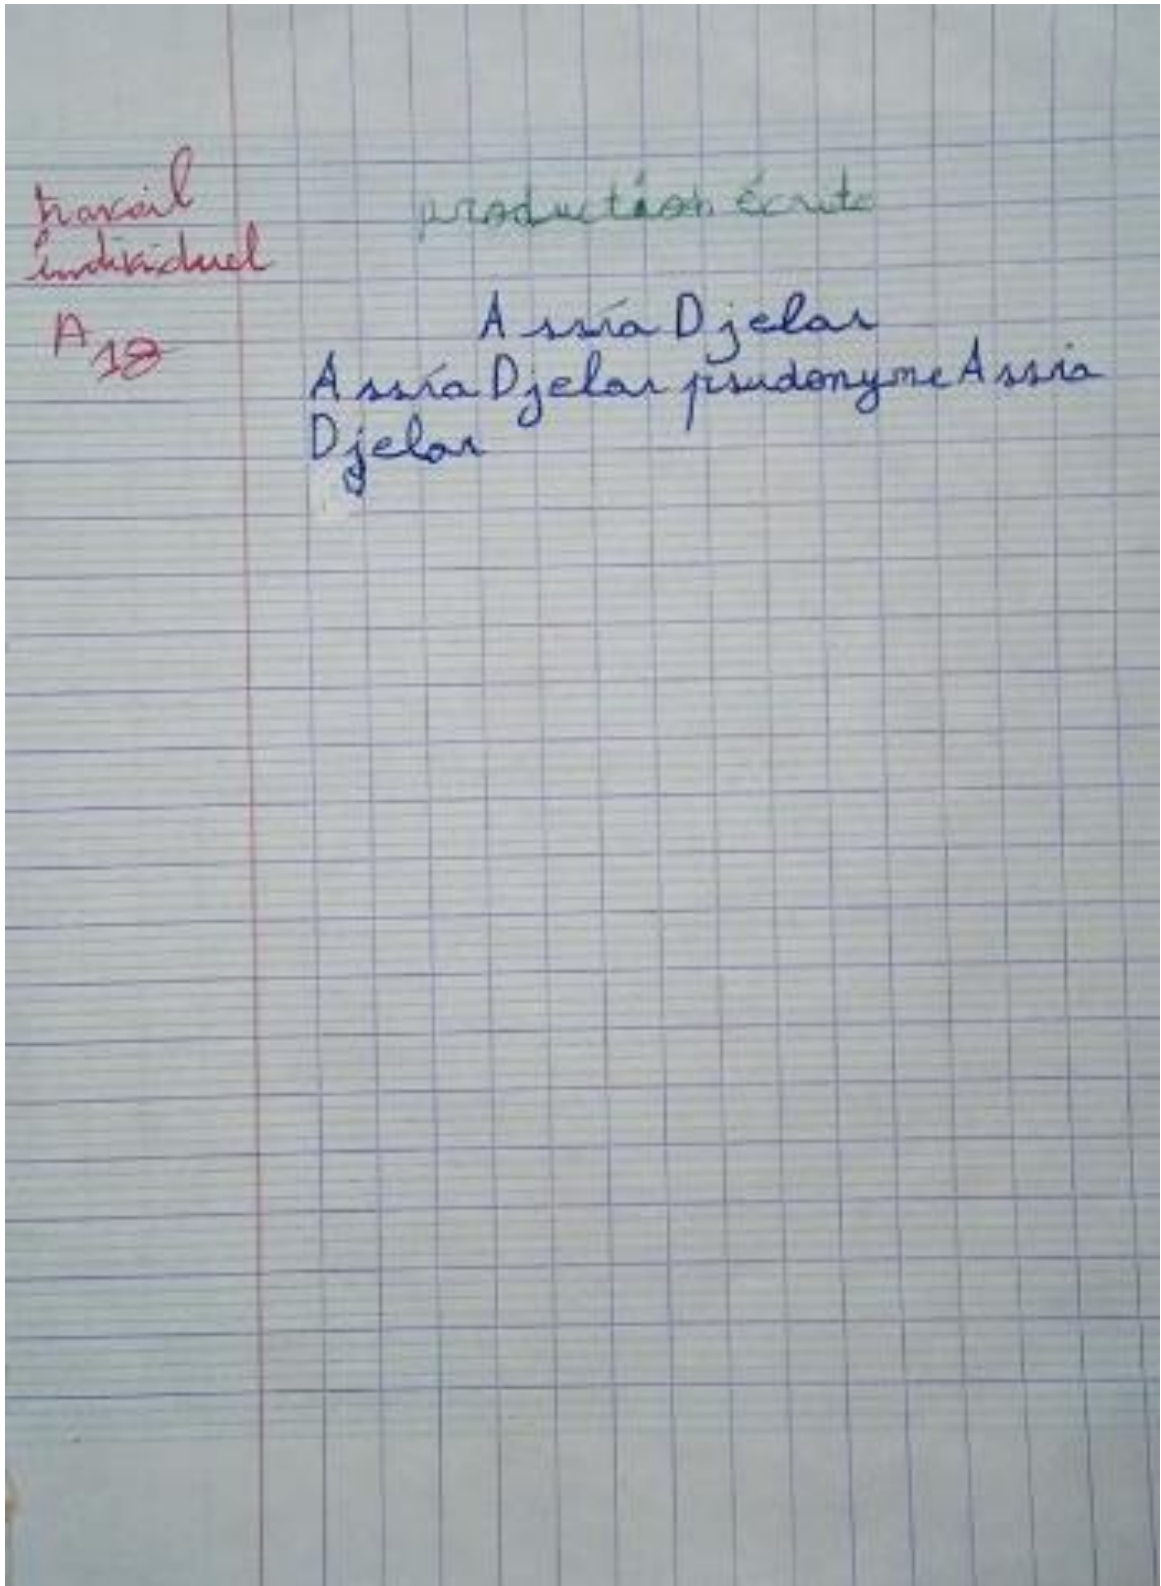 travail
individuel
A18
production écrite
Assia Djelar
Assia Djelar psudonyme Assia
Djelar